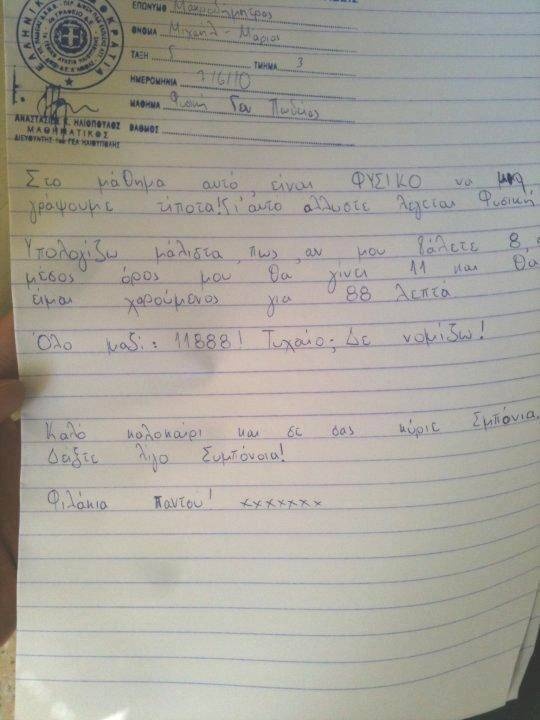 ΕΠΩΝΥΜΟ Μακροδημήτρας
ΟΝΟΜΑ Μιχαήλ - Μάριος
ΤΑΞΗ Γ ΤΜΗΜΑ 3
ΗΜΕΡΟΜΗΝΙΑ 7/6/10
ΜΑΘΗΜΑ Φυσική Γεν Παιδείας
ΒΑΘΜΟΣ
ΕΛΛΗΝΙΚΗ ΔΗΜΟΚΡΑΤΙΑ
ΑΝΑΣΤΑΣΙΟΣ Κ. ΗΛΙΟΠΟΥΛΟΣ
ΜΑΘΗΜΑΤΙΚΟΣ
ΔΙΕΥΘΥΝΤΗΣ 1ου ΓΕΛ ΗΛΙΟΥΠΟΛΗΣ
Στο μάθημα αυτό, είναι ΦΥΣΙΚΟ να μην
γράψουμε τίποτα! Γι'αυτο αλλωστε λέγεται Φυσική
Υπολογίζω μάλιστα, πως, αν μου βάλετε 8, ο
μέσος όρος μου θα γίνει 11 και θα
είμαι χαρούμενος για 88 λεπτά
Όλο μαζί: 11888! Τυχαίο; Δε νομίζω!
Καλό καλοκαίρι και σε σας κύριε Σμπόνια.
Δείξτε λίγο Συμπόνοια!
Φιλάκια παντού! xxxxxxx